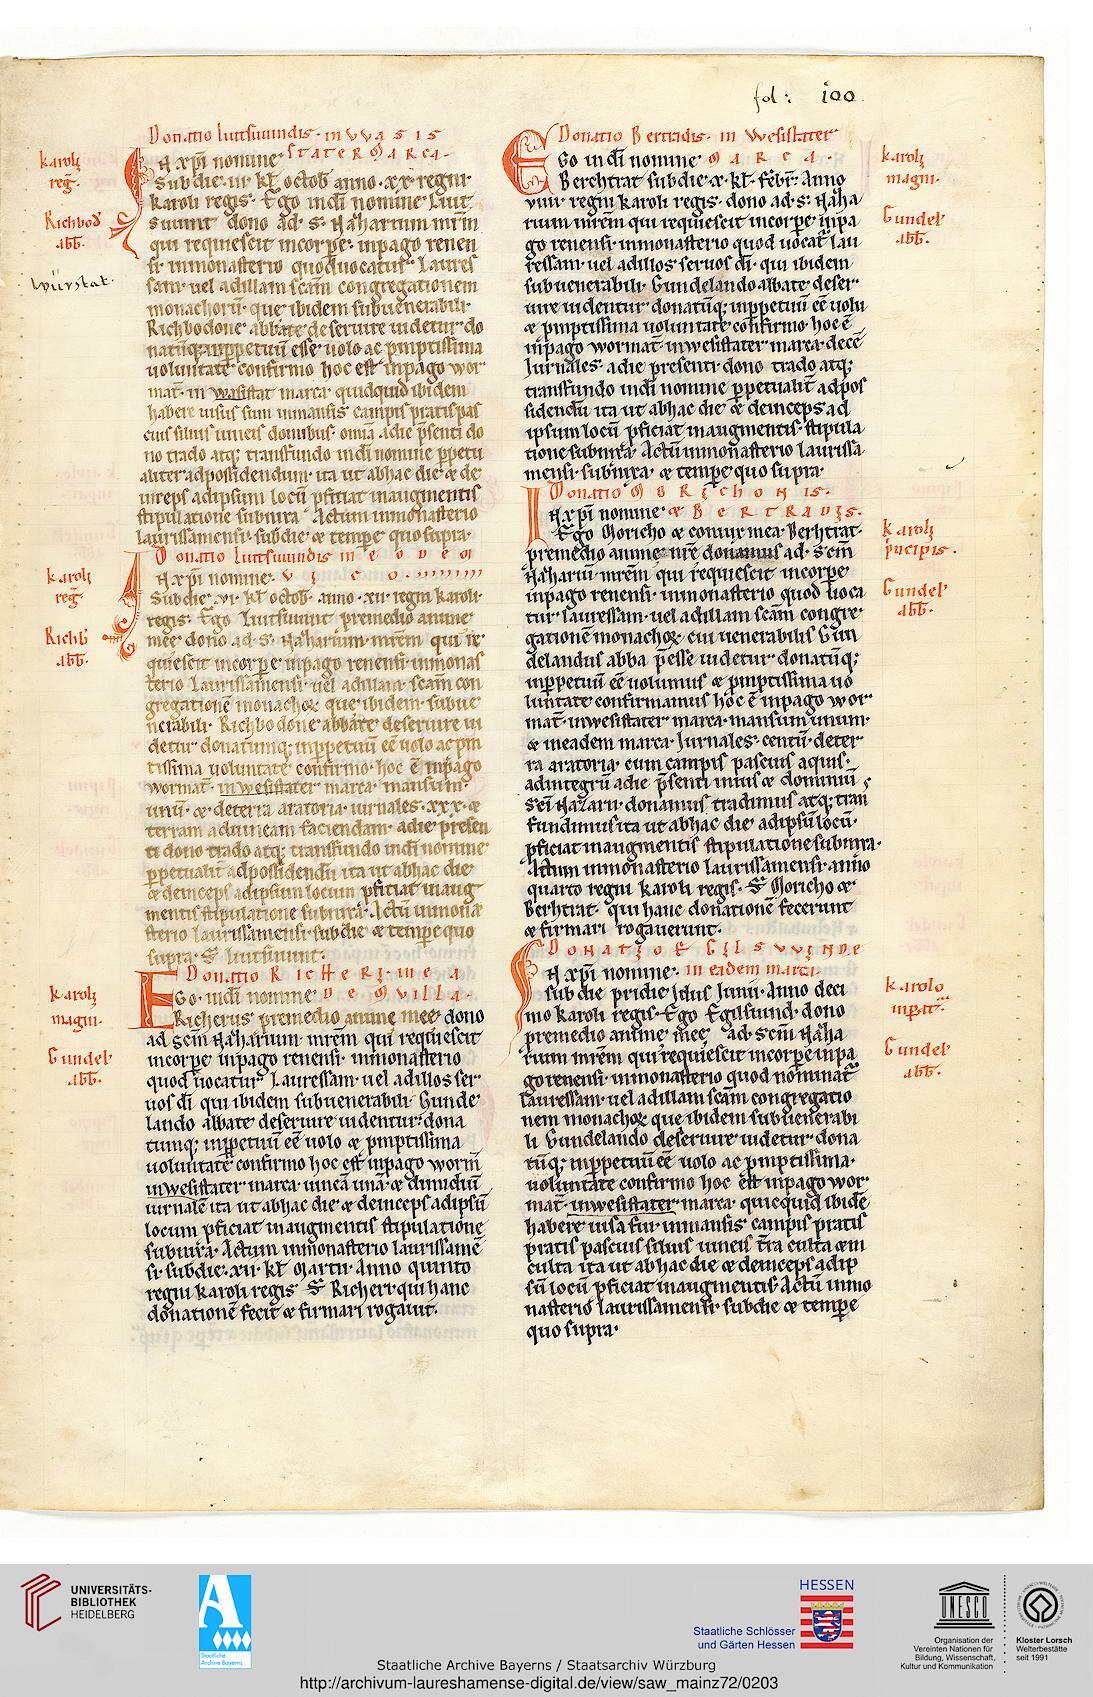 fol: 100
Donatio liutsuuindis· in VVASIS
STATER MARCA·
karoli
reg̅·
Richbod
abb̅·
würstat·
N xp̅i nomine
Sub die ·iii· kl̅ octob̅ anno ·xx· regni
karoli regis· Ego in di̅ nomine Liut
suuint dono ad ·s· Nazarium m̅r̅m
qui requiescit in corpe· in pago renen
si in monasterio quod uocatur Laures
sam· uel ad illam sc̅am congregationem
monachoru̅· que ibidem sub uenerabili
Richbodone abbate deseruire uidetur do
natu̅q; in ppetuu̅ esse uolo ac p̅mptissima
uoluntate confirmo hoc est in pago wor
mat̅· in wasistat marca quidquid ibidem
habere uisus sum in mansis campis pratis pas
cuis siluis uineis domibus· omia̅ a die p̅senti do
no trado atq; transfundo in di̅ nomine ppetu
aliter ad possidendum· ita ut ab hac die & de
inceps ad ipsum locu̅ p̅ficiat in augmentis
stipulatione subnixa Actum in monasterio
laurissamensi· sub die & tempe quo supra·
Donatio liutsuuindis in EODEM
VICO·
karoli
reg̅·
Rich̅b
abb̅·
N xp̅i nomine·
Sub die ·vi· kl̅ octob̅· anno ·xii· regni karoli
regis· Ego Liutsuuint p̅ remedio anime
mee dono ad ·s· Nazarium m̅r̅m qui re
quiescit in corpe in pago renensi in monas
terio laurissamensi· uel ad illam sc̅am con
gregatione̅ monachoꝝ que ibidem sub ue
nerabili· Richbodone abbate deseruire ui
detur donatumq; in ppetuu̅ e̅e̅ uolo ac p̅m
tissima uoluntate confirmo· hoc e̅ in pago
wormat̅· in wesistater marca mansum
unu̅· & de terra aratoria iurnales ·xxx· &
terram ad uineam faciendam· a die presen
ti dono trado atq; transfundo in di̅ nomine
ppetualit̅ ad possidendu̅ ita ut ab hac die
& deinceps ad ipsum locum p̅ficiat in aug
mentis stipulatione subnixa· Actu̅ in mona
sterio laurissamensi sub die & tempe quo
supra· S̅ liutsuuint·
Donatio RicHERI· in EA
DEM VILLA·
karoli
magni·
Gundel̅
abb̅·
Go· in di̅ nomine
Richerus p̅ remedio anime mee dono
ad sc̅m Nazarium m̅r̅m qui requiescit
in corpe in pago renensi· in monasterio
quod uocatur Lauressam· uel ad illos ser
uos di̅ qui ibidem sub uenerabili· Gunde
lando abbate deseruire uidentur· dona
tumq; in ppetuu̅ e̅e̅ uolo & p̅mptissima
uoluntate confirmo hoc est in pago worm̅
in wesistater marca uinea̅ una̅ & dimidiu̅
iurnale̅ ita ut ab hac die & deinceps ad ipsu̅
locum p̅ficiat in augmentis stipulatione
subnixa· Actum in monasterio laurissame̅
si· sub die ·xii· kl̅ Martii· Anno quinto
regni karoli regis S̅ Richeri qui hanc
donatione̅ fecit & firmari rogauit·
Donatio Bertradis· in Wesistater
MARCA·
karoli
magni·
Gundel̅
abb̅·
Go in di̅ nomine
Berchtrat sub die ·x· kl̅· feb̅r· Anno
viiii regni karoli regis· dono ad ·s· Naza
rium m̅r̅m qui requiescit in corpe in pa
go renensi in monasterio quod uocat̅ lau
ressam· uel ad illos seruos di̅· qui ibidem
sub uenerabili· Gundelando abbate deser
uire uidentur donatu̅q; in ppetuu̅ e̅e̅ uolu
& p̅mptissima uoluntate confirmo· hoc e̅
in pago wormat̅· in wesistater marca dece̅
iurnales· a die presenti dono trado atq;
transfundo in di̅ nomine ppetualit̅ ad pos
sidendu̅ ita ut ab hac die & deinceps ad
ipsum locu̅ p̅ficiat in augmentis· stipula
tione subnixa· Actu̅ in monasterio laurissa
mensi· sub nixa· & tempe quo supra·
Donatio MORICHONIS·
& BERTRADIS·
karoli
p̅ncipis·
Gundel̅
abb̅·
N xp̅i nomine
Ego Moricho & coniux mea· Berhtrat·
p̅ remedio anime nr̅e donamus ad· sc̅m
Nazariu̅ m̅r̅em qui requiescit in corpe
in pago renensi· in monasterio quod uoca
tur lauressam· uel ad illam sc̅am congre
gatione̅ monachoꝝ cui uenerabilis Gun
delandus abba p̅esse uidetur donatu̅q;
in ppetuu̅ e̅e̅ uolumus & p̅mptissima uo
luntate confirmamus hoc e̅ in pago wor
mat̅· in wesistater marca· mansum unum·
& in eadem marca· Jurnales· centu̅· de ter
ra aratoria· cum campis pascuis aquis·
ad integru̅ a die p̅senti in ius & dominiu̅
sc̅i Nazarii· donamus tradimus atq; tran
fundimus ita ut ab hac die ad ipsu̅ locu̅·
p̅ficiat in augmentis stipulatione subnixa·
Actum in monasterio laurissamensi· anno
quarto regni karoli regis· S̅ Moricho &
Berhtrat· qui hanc donatione̅ fecerunt
& firmari rogauerunt·
DONATIO EGILSVVINDE
in eadem marca·
karolo
inp̅at̅·
Gundel̅
abb̅·
N xp̅i nomine·
sub die pridie Idus Iunii· Anno deci
mo karoli regis· Ego Egilsuind· dono
p̅ remedio anime mee, ad· sc̅m Naza
rium m̅r̅em qui requiescit in corpe in pa
go renensi· in monasterio quod nominat̅
lauressam· uel ad illam sc̅am congregatio
nem monachoꝝ que ibidem sub uenerabi
li Gundelando deseruire uidetur dona
tu̅q; in ppetuu̅ e̅e̅ uolo ac p̅mptissima·
uoluntate confirmo hoc est in pago wor
mat̅· in wesistater marca· quicquid ibide̅
habere uisa sui̅ in mansis· campis pratis
pratis pascuis siluis uineis t̅ra culta & in
culta ita ut ab hac die & deinceps ad ip
su̅ locu̅ p̅ficiat in augmentis· Actu̅ in mo
nasterio laurissamensi· sub die & tempe
quo supra·
UNIVERSITÄTS-
BIBLIOTHEK
HEIDELBERG
Staatliche
Archive Bayerns
HESSEN
Staatliche Schlösser
und Gärten Hessen
UNESCO
Organisation der
Vereinten Nationen für
Bildung, Wissenschaft,
Kultur und Kommunikation
Kloster Lorsch
Welterbestätte
seit 1991
Staatliche Archive Bayerns / Staatsarchiv Würzburg
http://archivum-laureshamense-digital.de/view/saw_mainz72/0203